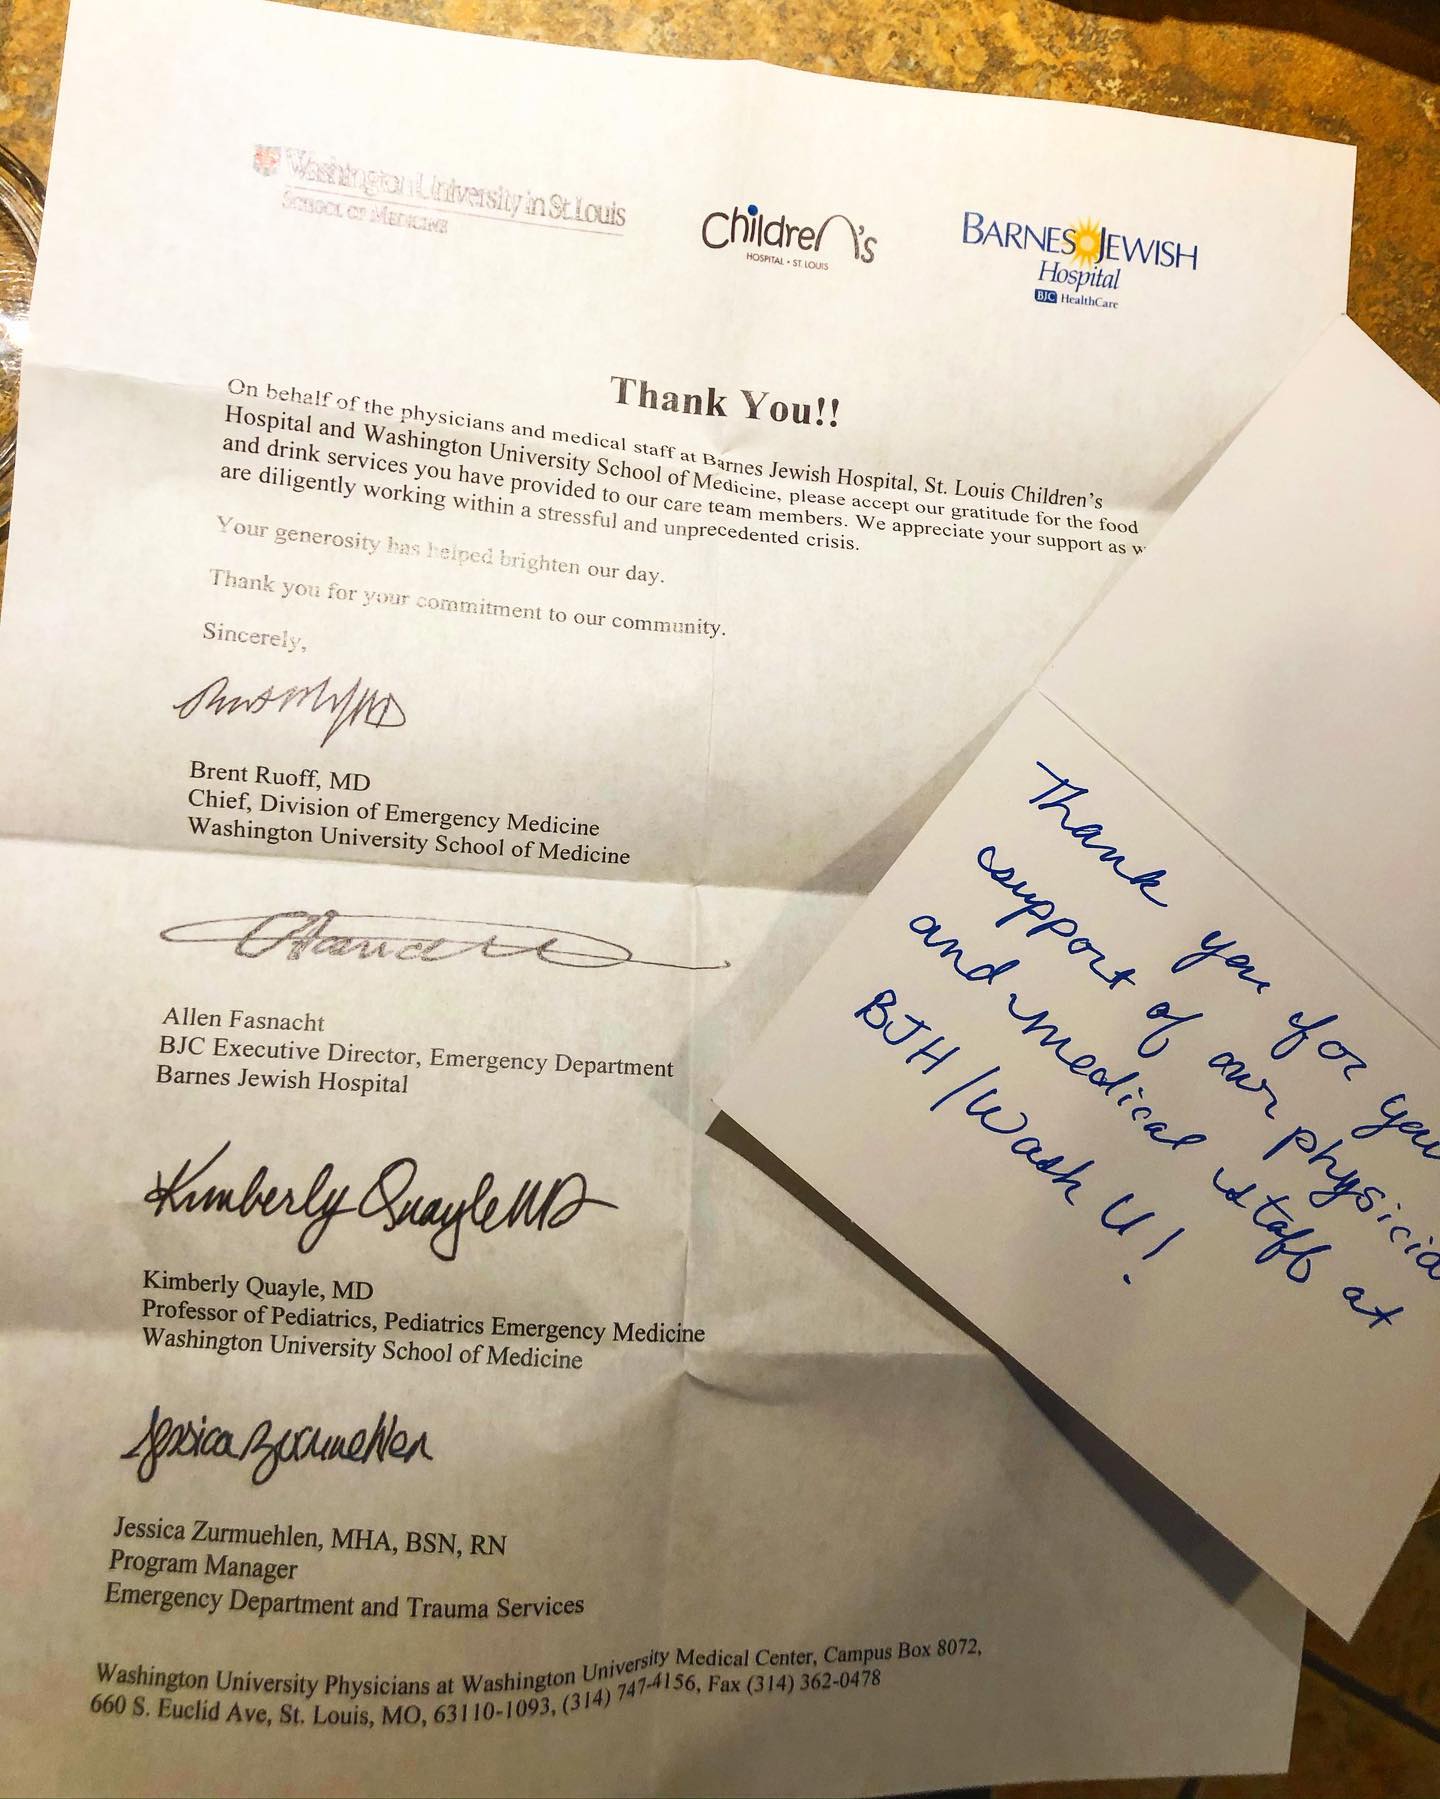 Washington University in St. Louis
SCHOOL OF MEDICINE
Children's
HOSPITAL • ST. LOUIS
BARNES JEWISH
Hospital
BJC HealthCare
Thank You!!
On behalf of the physicians and medical staff at Barnes Jewish Hospital, St. Louis Children's
Hospital and Washington University School of Medicine, please accept our gratitude for the food
and drink services you have provided to our care team members. We appreciate your support as
are diligently working within a stressful and unprecedented crisis.
Your generosity has helped brighten our day.
Thank you for your commitment to our community.
Sincerely,
Brent Ruoff, MD
Chief, Division of Emergency Medicine
Washington University School of Medicine
Allen Fasnacht
BJC Executive Director, Emergency Department
Barnes Jewish Hospital
Kimberly Quayle MD
Kimberly Quayle, MD
Professor of Pediatrics, Pediatrics Emergency Medicine
Washington University School of Medicine
Jessica Zurmuehlen
Jessica Zurmuehlen, MHA, BSN, RN
Program Manager
Emergency Department and Trauma Services
Washington University Physicians at Washington University Medical Center, Campus Box 8072,
660 S. Euclid Ave, St. Louis, MO, 63110-1093, (314) 747-4156, Fax (314) 362-0478
Thank you for you
support of our physicia
and medical staff at
BJH/Wash U!